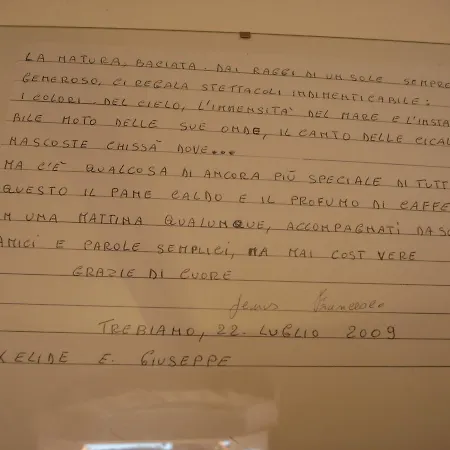 LA NATURA, BACIATA DAI RAGGI DI UN SOLE SEMPRE
GENEROSO, CI REGALA SPETTACOLI INDIMENTICABILE:
I COLORI DEL CIELO, L'IMMENSITA' DEL MARE E L'INSTA
BILE MOTO DELLE SUE ONDE, IL CANTO DELLE CICAL
NASCOSTE CHISSÀ DOVE...
MA C'È QUALCOSA DI ANCORA PIÙ SPECIALE DI TUTT
QUESTO IL PANE CALDO E IL PROFUMO DI CAFFE
IN UNA MATTINA QUALUNQUE, ACCOMPAGNATI DA SO
AMICI E PAROLE SEMPLICI, MA MAI COSI VERE
GRAZIE DI CUORE
TREBIANO, 22 LUGLIO 2009
ELIDE E GIUSEPPE